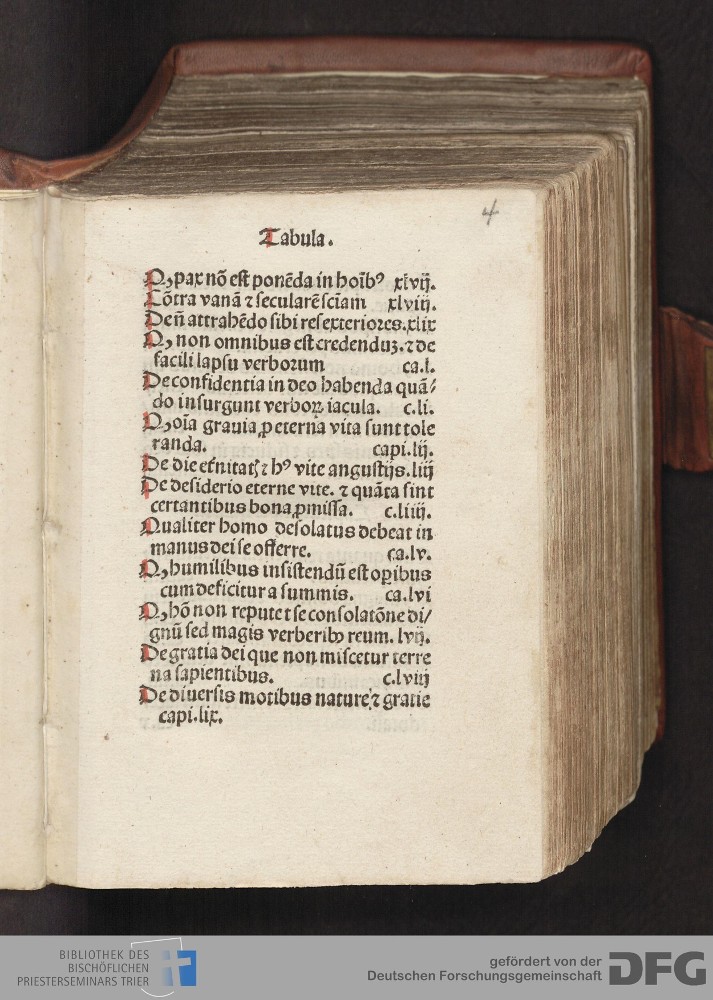 4
Tabula.
Qꝫ pax nō est ponēda in hoībꝰ xlvij.
Cōtra vanā ⁊ secularē sciam xlviij.
De ñ attrahēdo sibi res exteriores. xlix
Qꝫ non omnibus est credenduꝫ. ⁊ de
facili lapsu verborum ca.l.
De confidentia in deo habenda quā⸗
do insurgunt verboꝝ iacula. c.li.
Qꝫ oīa grauia ꝓ eterna vita sunt tole
randa. capi.lij.
De die et̄nitatꝭ ⁊ hꝰ vite angustijs. liij
De desiderio eterne vite. ⁊ quāta sint
certantibus bona ꝓmissa. c.liiij.
Qualiter homo desolatus debeat in
manus dei se offerre. ca.lv.
Qꝫ humilibus insistendū est oꝑibus
cum deficitur a summis. ca.lvi
Qꝫ hō non reputet se consolatōne di/
gnū sed magis verberibꝫ reum. lvij.
De gratia dei que non miscetur terre
na sapientibus. c.lviij
De diuersis motibus nature ⁊ gratie
capi.lix.
BIBLIOTHEK DES
BISCHÖFLICHEN
PRIESTERSEMINARS TRIER
gefördert von der
Deutschen Forschungsgemeinschaft
DFG